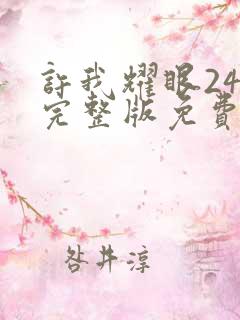 許我耀眼24
完整版免費
咎井淳